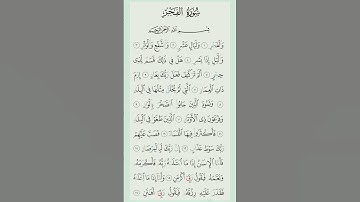 سُورَةُ الفَجْرِ
بسم الله الرحمن الرحيم
وَالْفَجْرِ ١ وَلَيَالٍ عَشْرٍ ٢ وَالشَّفْعِ وَالْوَتْرِ ٣
وَاللَّيْلِ إِذَا يَسْرِ ٤ هَلْ فِي ذَلِكَ قَسَمٌ لِذِي
حِجْرٍ ٥ أَلَمْ تَرَ كَيْفَ فَعَلَ رَبُّكَ بِعَادٍ ٦ إِرَمَ
ذَاتِ الْعِمَادِ ٧ الَّتِي لَمْ يُخْلَقْ مِثْلُهَا فِي الْبِلَادِ
٨ وَثَمُودَ الَّذِينَ جَابُوا الصَّخْرَ بِالْوَادِ ٩
وَفِرْعَوْنَ ذِي الْأَوْتَادِ ١٠ الَّذِينَ طَغَوْا فِي الْبِلَادِ
١١ فَأَكْثَرُوا فِيهَا الْفَسَادَ ١٢ فَصَبَّ عَلَيْهِمْ
رَبُّكَ سَوْطَ عَذَابٍ ١٣ إِنَّ رَبَّكَ لَبِالْمِرْصَادِ ١٤
فَأَمَّا الْإِنْسَانُ إِذَا مَا ابْتَلَاهُ رَبُّهُ فَأَكْرَمَهُ
وَنَعَّمَهُ فَيَقُولُ رَبِّي أَكْرَمَنِ ١٥ وَأَمَّا إِذَا مَا ابْتَلَاهُ
فَقَدَرَ عَلَيْهِ رِزْقَهُ فَيَقُولُ رَبِّي أَهَانَنِ ١٦